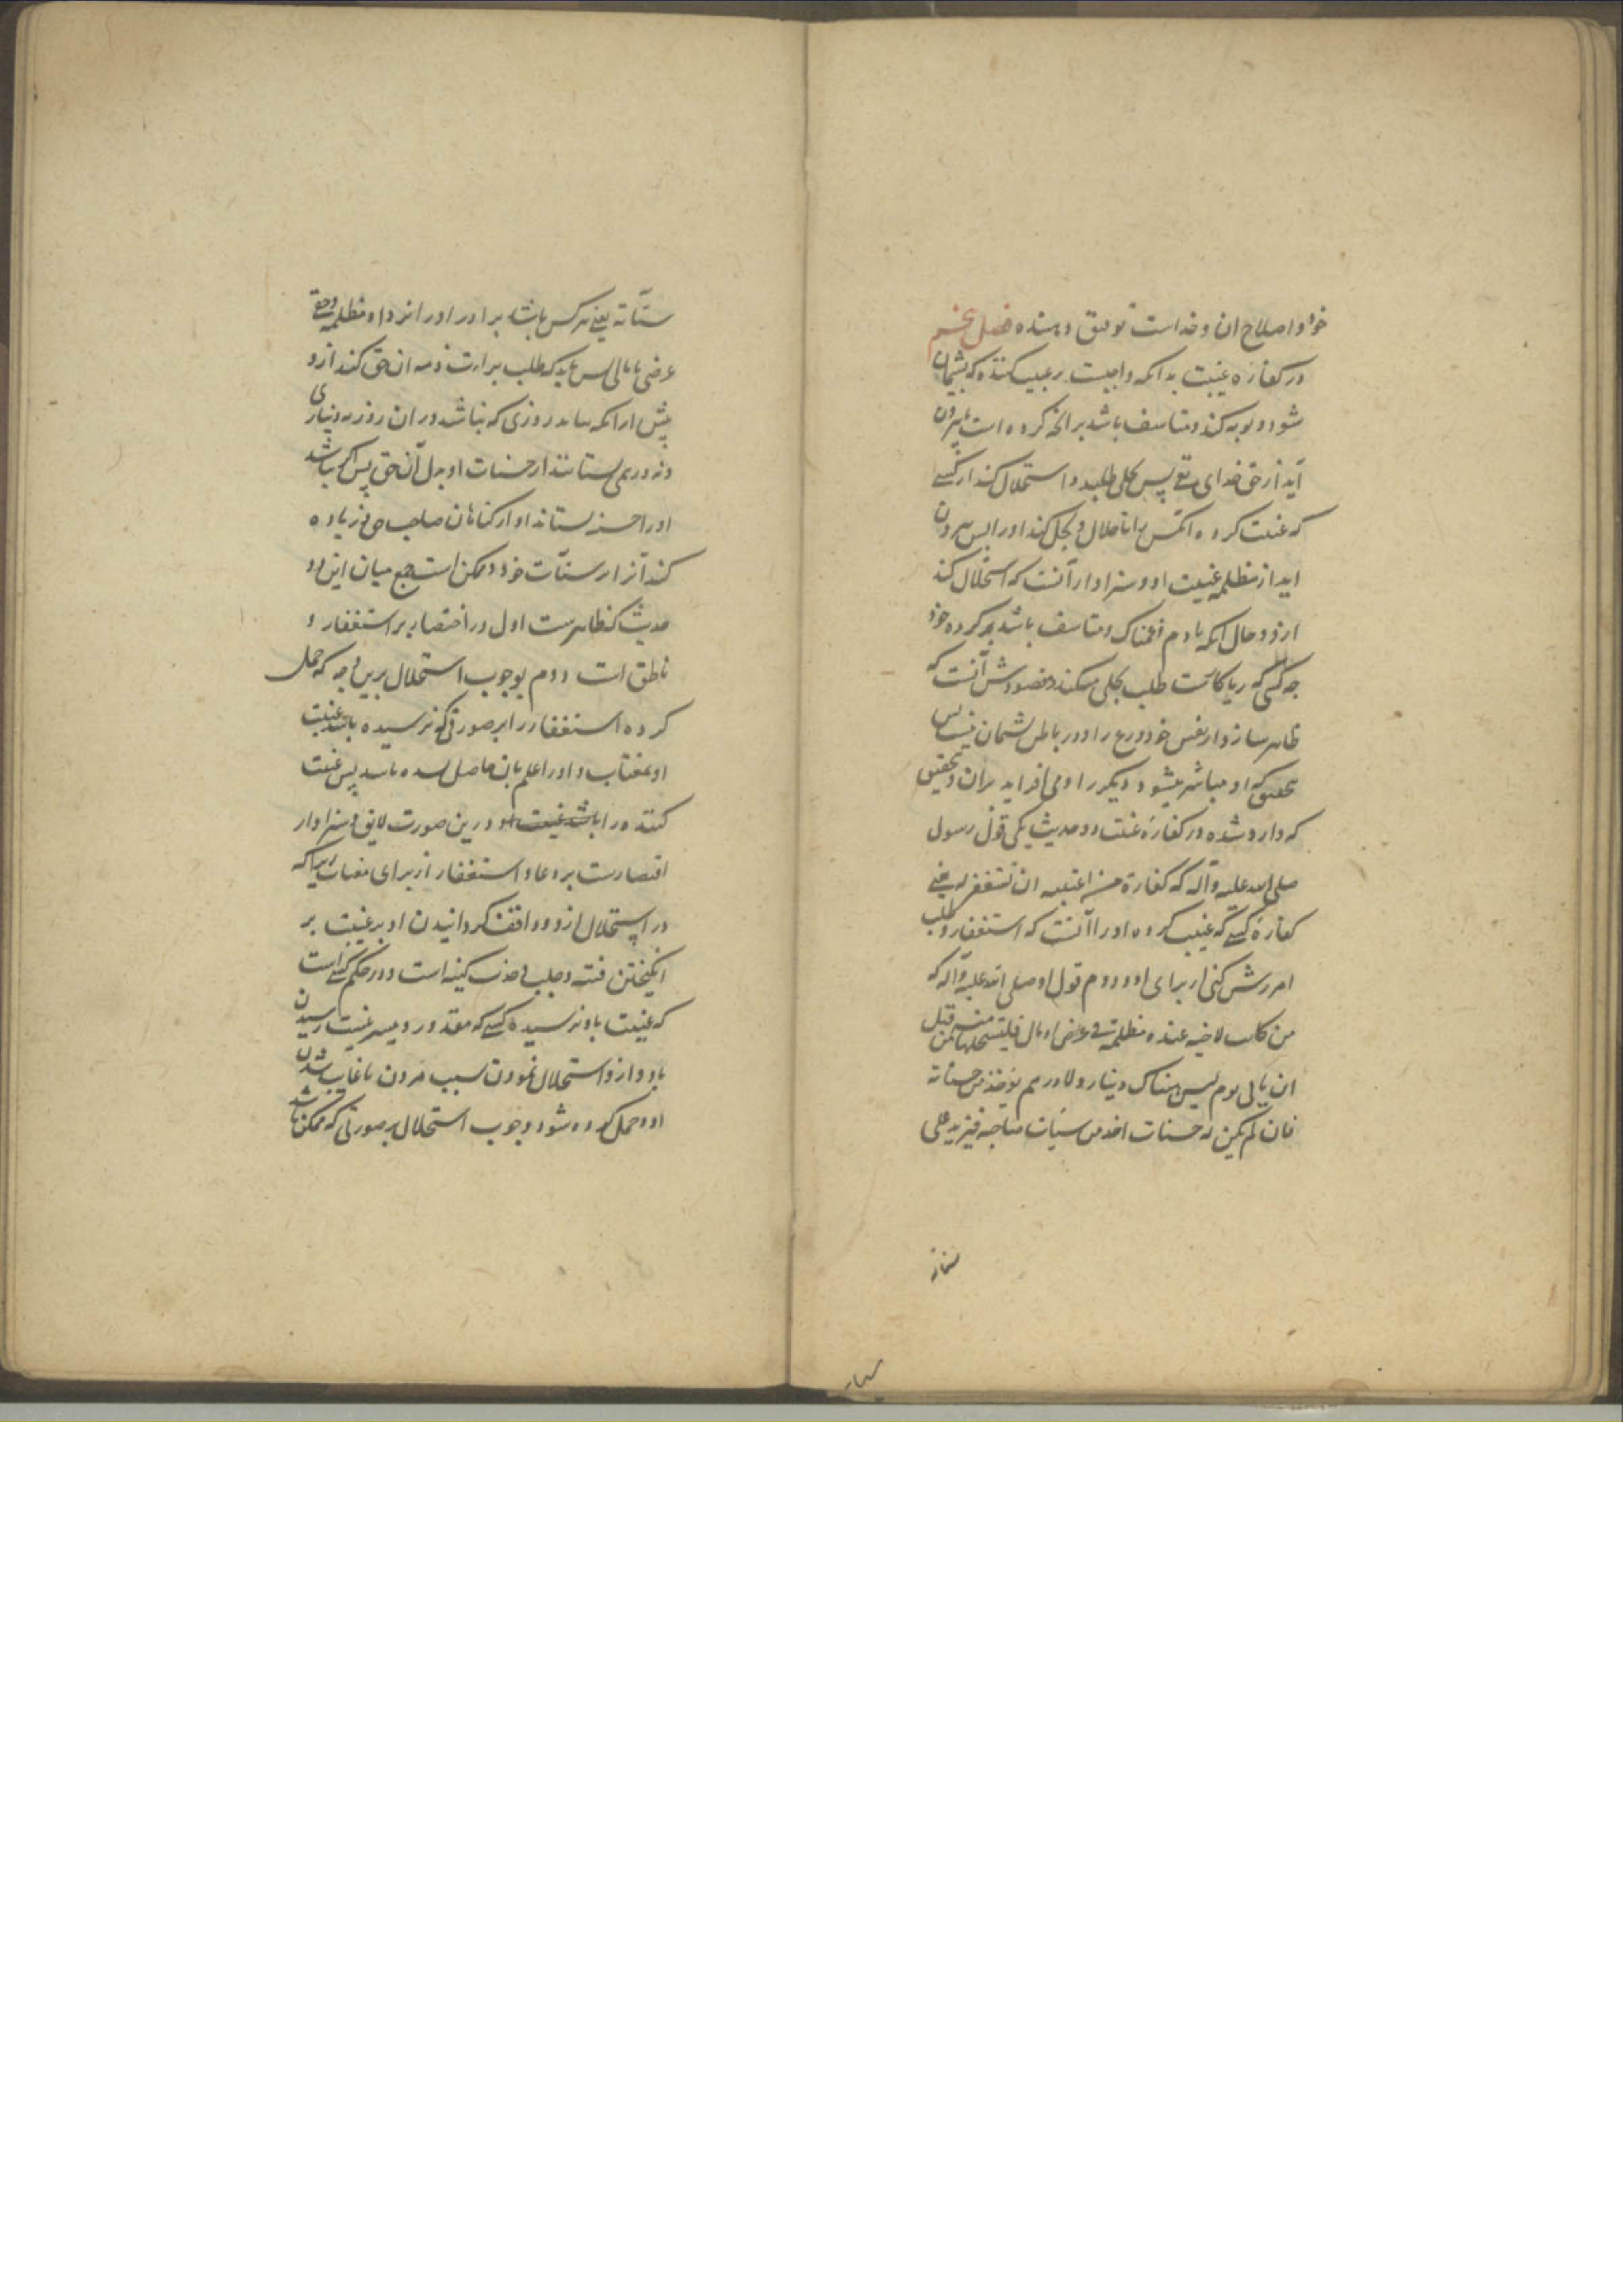 خود و اصلاح ان و خداست توفیق دهنده فصل پنجم
در کفاره غیبت بدانکه واجبست بر غیبت کننده که پشیمان
شود و توبه کند و متاسف باشد بر آنچه کرده است تا بیرون
آید از حق خدای تع پس بحلی طلبد و استحلال کند از کسی
که غیبت کرده انکس را تا حلال و بحل کند او را پس بیرون
اید از مظلمه غیبت او و سزاوار آنست که استحلال کند
ازو و حال انکه نادم و غمناک و متاسف باشد بر کرده خود
چه کسی که ریا کاست طلب بحلی میکند و مقصودش آنست که
ظاهر سازد از نفس خود ورع را و در باطن پشیمان نیست پس
بتحقیق که او مباشر میشود دیگر را و می افزاید بران و بتحقیق
که وارد شده در کفارهٔ غیبت دو حدیث یکی قول رسول
صلی الله علیه و آله که کفارة من اغتبته ان تستغفر له یعنی
کفارهٔ کسی که غیبت کرده او را آنست که استغفار و طلب
امرزش کنی از برای او و دوم قول او صلی الله علیه و آله که
من کانت لاخیه عنده مظلمة فی عرض او مال فلیتحللها منه من قبل
ان یاتی یوم لیس هناک دینار و لا درهم یؤخذ من حسناته
فان لم یکن له حسنات اخذ من سیئات صاحبه فیزید علی
سیئاته
سیئاته یعنی هر کس باشد برادر او را نزد او مظلمه و حقی
عرضی یا مالی پس باید که طلب براءت ذمه ان حق کند ازو
پیش از انکه بیاید روزی که نباشد در ان روز نه دیناری
و نه درهمی بستانند از حسنات او بدل آن حق پس اگر نباشد
او را حسنه بستاند او از کناهان صاحب حق و زیاده
کند آنرا بر سیئات خود و ممکن است جمع میان این دو
حدیث که ظاهرست اول در اختصار بر استغفار و
ناطق است دوم بوجوب استحلال برین وجه که حمل
کرده استغفار را بر صورتی که نرسیده باشد غیبت
او بمغتاب و او را علم بان حاصل نشده باشد پس غیبت
کننده را باشد غیبت او و درین صورت لایق و سزاوار
اقتصارست بر دعا و استغفار از برای مغتاب زیرا که
در استحلال ازو و واقف کردانیدن او بر غیبت بر
انکیختن فتنه و جلب و جذب کینه است و در حکم کسی است
که غیبت باو نرسیده کسی که مقدور و میسر نیست رسیدن
باو و ازو استحلال نمودن بسبب مردن یا غایب شدن
او و حمل کرده شود وجوب استحلال بر صورتی که ممکن باشد